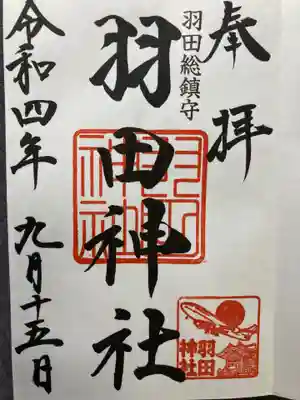 奉拝
羽田総鎮守
羽田神社
令和四年 九月十五日
羽田神社
羽田
神社